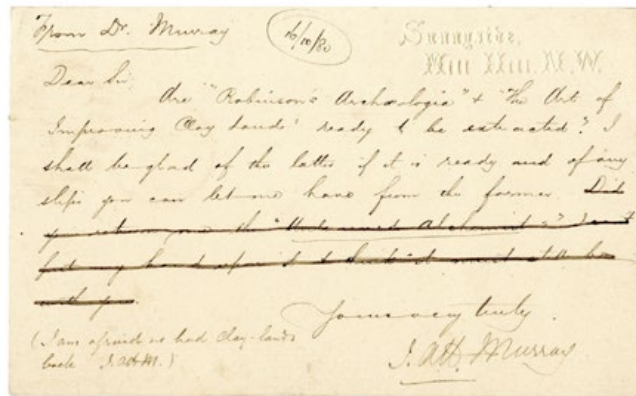 From Dr. Murray
16/10/80
Sunnyside,
Mill Hill. N.W.
Dear Sir
Are "Robinson's Archæologia" & "The Art of
Improving Clay Lands" ready to be extracted? I
shall be glad of the latter if it is ready and of any
slips you can let me have from the former. Did
you return me the
my hand upon it & think it must
with you.
Yours very truly
J.A.H. Murray
(I am afraid we had Clay-lands
back J.A.H.M.)